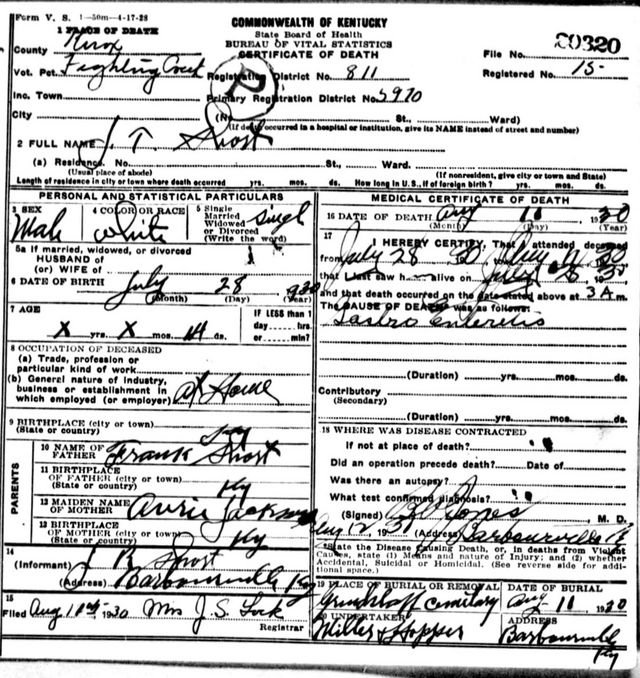 Form V. S. 1—50m—4-17-28
COMMONWEALTH OF KENTUCKY
State Board of Health
BUREAU OF VITAL STATISTICS
CERTIFICATE OF DEATH
1 PLACE OF DEATH
County Knox
File No. 20320
Vot. Pct.
Registration District No. 811
Registered No. 15
Inc. Town
Primary Registration District No. 5970
P
City (No. St., Ward)
(If death occurred in a hospital or institution, give its NAME instead of street and number)
2 FULL NAME J. T.
(a) Residence. No. St., Ward.
(Usual place of abode) (If nonresident, give city or town and State)
Length of residence in city or town where death occurred yrs. mos. ds. How long in U. S., if of foreign birth? yrs. mos. ds.
PERSONAL AND STATISTICAL PARTICULARS
3 SEX
Male
4 COLOR OR RACE
White
5 Single
Married
Widowed
or Divorced
(Write the word)
Singl
5a If married, widowed, or divorced
HUSBAND of
(or) WIFE of
6 DATE OF BIRTH July 28 1930
(Month) (Day) (Year)
7 AGE
X yrs. X mos. 14 ds.
IF LESS than 1
day hrs.
or min?
8 OCCUPATION OF DECEASED
(a) Trade, profession or
particular kind of work
(b) General nature of industry,
business or establishment in
which employed (or employer) at Home
9 BIRTHPLACE (city or town)
(State or country) Ky
PARENTS
10 NAME OF
FATHER Frank
11 BIRTHPLACE
OF FATHER (city or town)
(State or country) Ky
12 MAIDEN NAME
OF MOTHER Jackson
13 BIRTHPLACE
OF MOTHER (city or town)
(State or country) Ky
14
(Informant)
(Address) Barbourville Ky
15
Filed Aug 1930 Mrs J. S. Lock
Registrar
MEDICAL CERTIFICATE OF DEATH
16 DATE OF DEATH Aug 11 1930
(Month) (Day) (Year)
17
I HEREBY CERTIFY, That I attended deceased
from July 28 30, to 30
that I last saw h alive on
and that death occurred on the date stated above at 3 A m.
The CAUSE OF DEATH was as follows:
Gastro Enteritis
(Duration) yrs. mos. ds.
Contributory
(Secondary)
(Duration) yrs. mos. ds.
18 WHERE WAS DISEASE CONTRACTED
If not at place of death?
Did an operation precede death? Date of
Was there an autopsy?
What test confirmed diagnosis?
(Signed) Jones M. D.
Aug 12 (Address) Barbourville
*State the Disease Causing Death, or, in deaths from Violent
Causes, state (1) Means and nature of Injury; and (2) whether
Accidental, Suicidal or Homicidal. (See reverse side for addi-
tional space.)
19 PLACE OF BURIAL OR REMOVAL
cemetary
DATE OF BURIAL
Aug 11 1930
20 UNDERTAKER
Miller & Hopper
ADDRESS
Barbourville
Ky